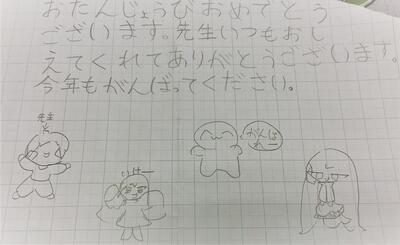 おたんじょうびおめでとう
ございます。先生いつもおし
えてくれてありがとうございます。
今年もがんばってください。
先生
いけー
がんば
れー